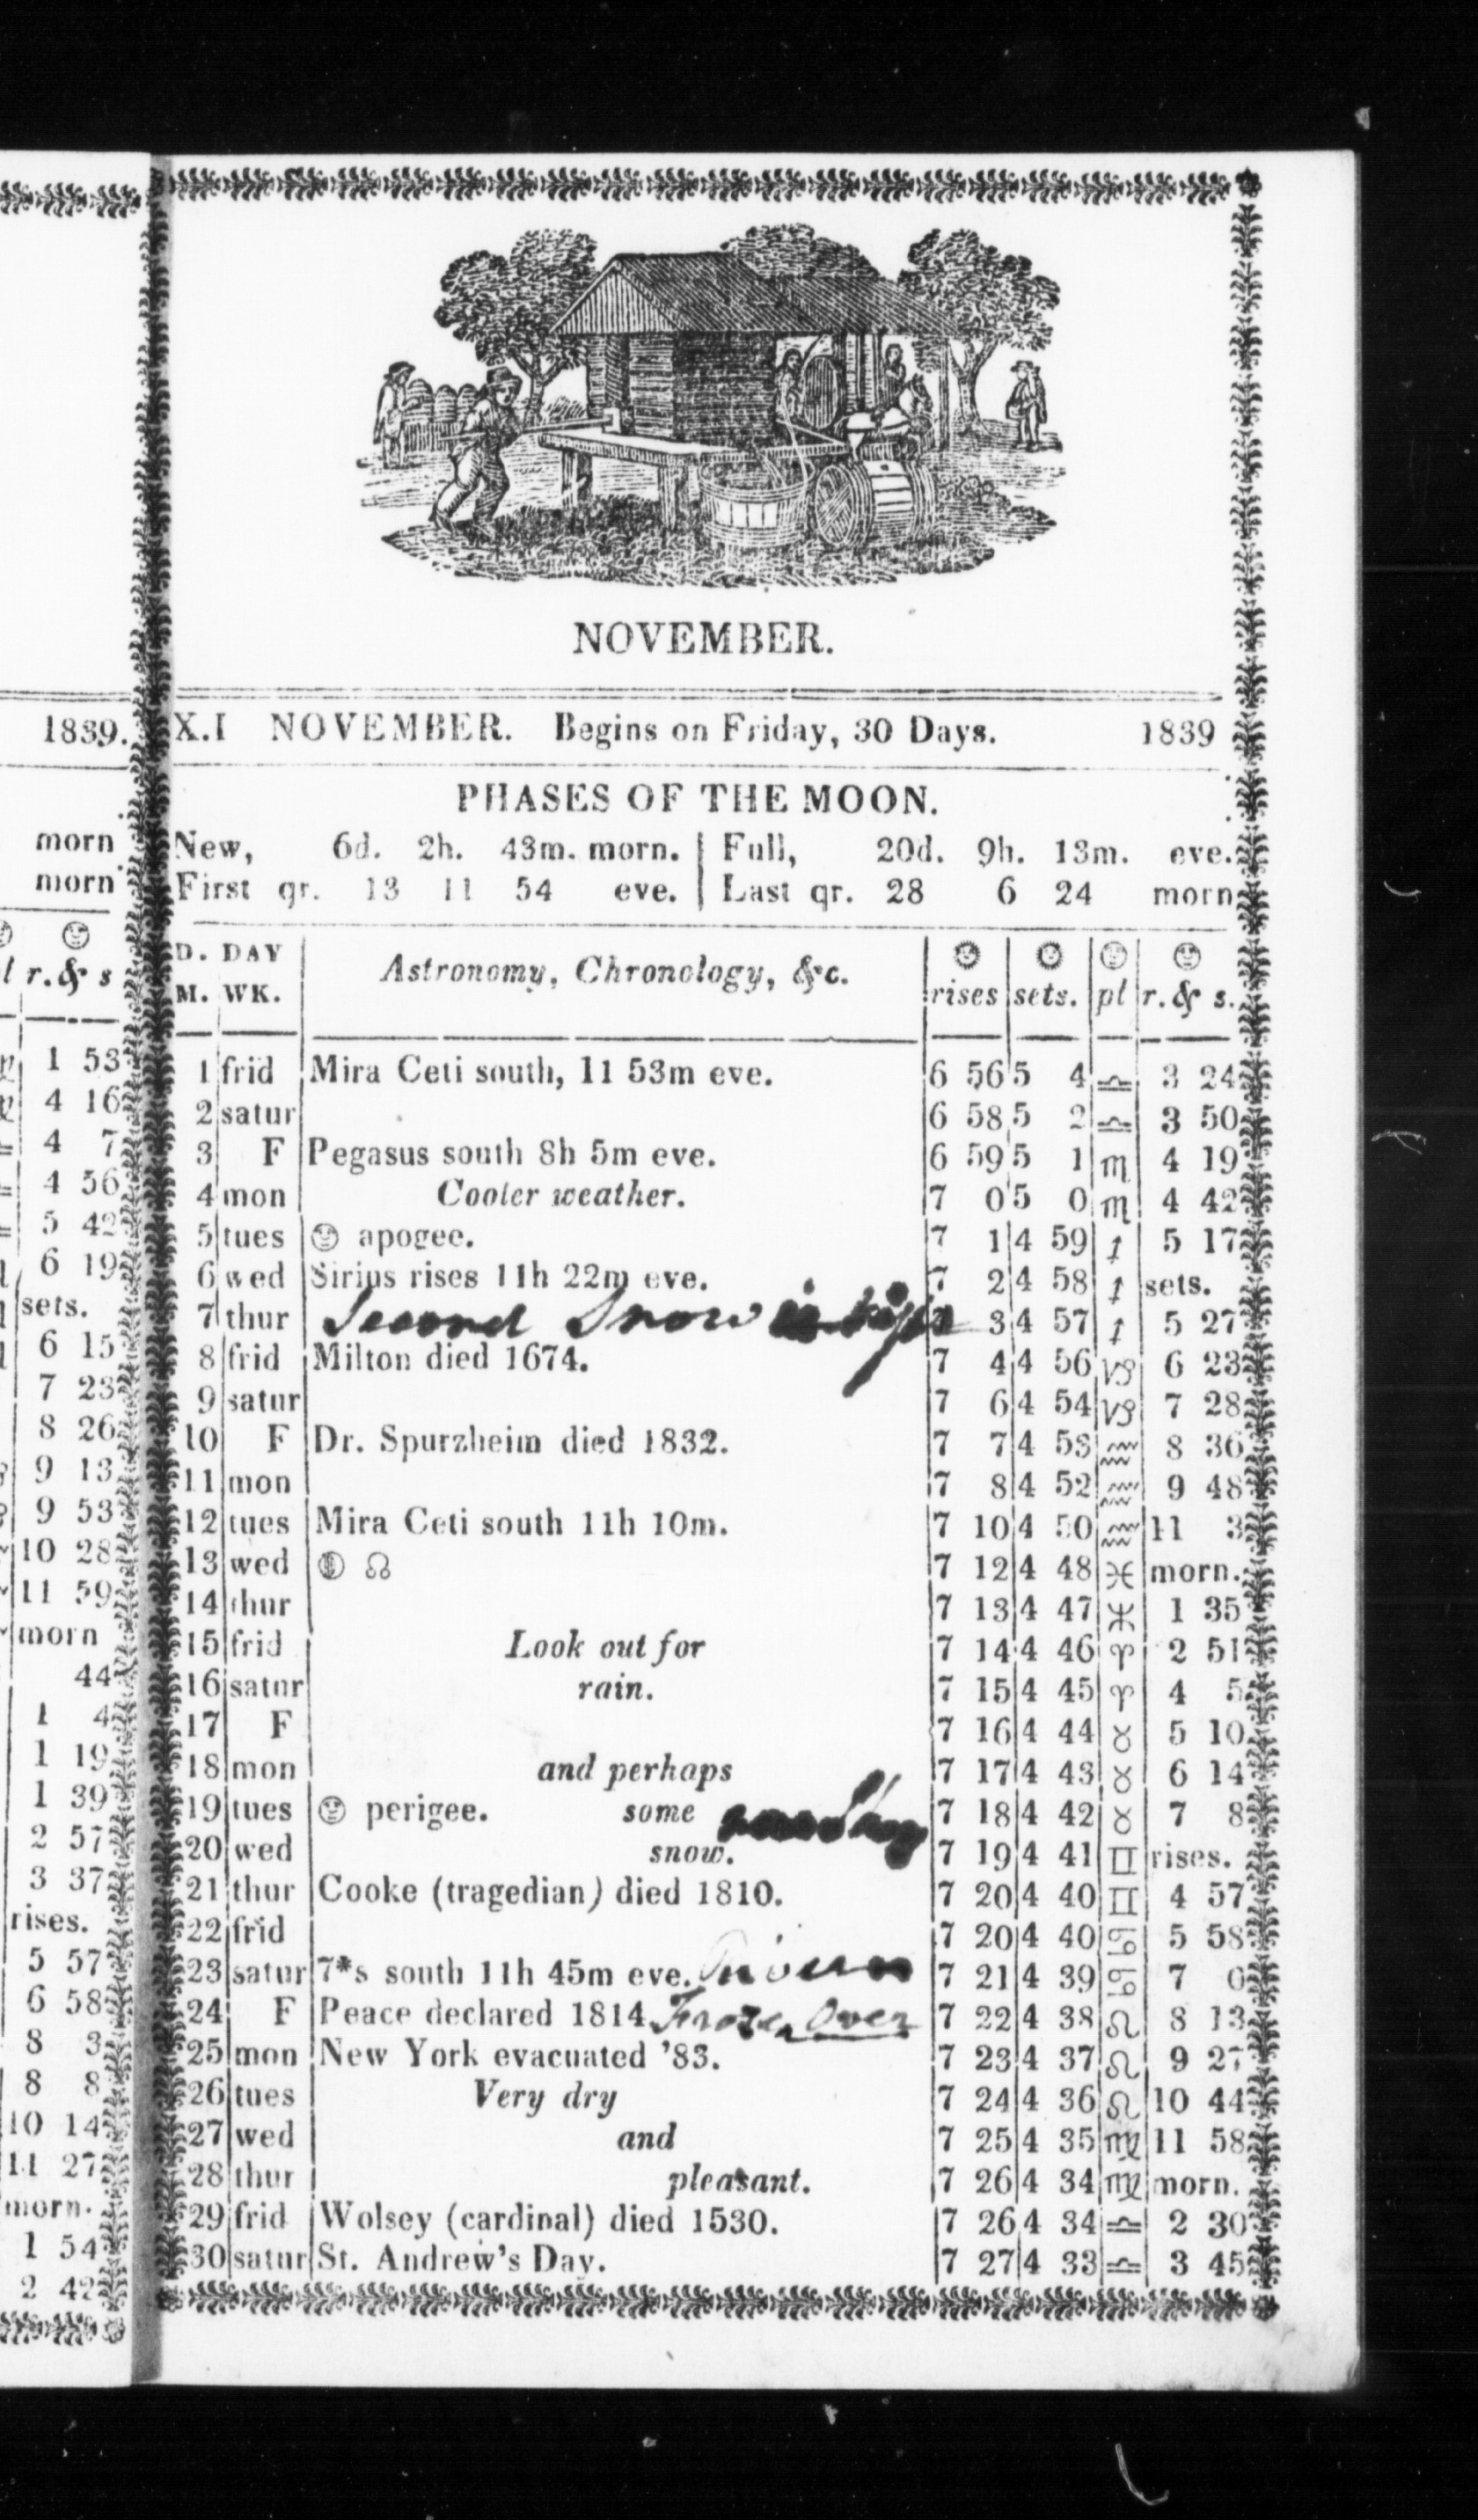 1839.
morn
morn
r. & s
1 53
4 16
4 7
4 56
5 42
6 19
sets.
6 15
7 23
8 26
9 13
9 53
10 28
11 59
morn
44
1 4
1 19
1 39
2 57
3 37
rises.
5 57
6 58
8 3
8 8
10 14
11 27
morn.
1 54
2 42
NOVEMBER.
X.I NOVEMBER. Begins on Friday, 30 Days. 1839
PHASES OF THE MOON.
New, 6d. 2h. 43m. morn. | Full, 20d. 9h. 13m. eve.
First qr. 13 11 54 eve. | Last qr. 28 6 24 morn
D. DAY Astronomy, Chronology, &c. ☉ ☉ ☽ ☽
M. WK. rises sets. pl r. & s.
1 frid Mira Ceti south, 11 53m eve. 6 56 5 4 ♎ 3 24
2 satur 6 58 5 2 ♎ 3 50
3 F Pegasus south 8h 5m eve. 6 59 5 1 ♏ 4 19
4 mon Cooler weather. 7 0 5 0 ♏ 4 42
5 tues ☽ apogee. 7 1 4 59 ♐ 5 17
6 wed Sirius rises 11h 22m eve. 7 2 4 58 ♐ sets.
7 thur Second Snow 7 3 4 57 ♐ 5 27
8 frid Milton died 1674. 7 4 4 56 ♑ 6 23
9 satur 7 6 4 54 ♑ 7 28
10 F Dr. Spurzheim died 1832. 7 7 4 53 ♒ 8 36
11 mon 7 8 4 52 ♒ 9 48
12 tues Mira Ceti south 11h 10m. 7 10 4 50 ♒ 11 3
13 wed ☽ ☊ 7 12 4 48 ♓ morn.
14 thur 7 13 4 47 ♓ 1 35
15 frid Look out for 7 14 4 46 ♈ 2 51
16 satur rain. 7 15 4 45 ♈ 4 5
17 F 7 16 4 44 ♉ 5 10
18 mon and perhaps 7 17 4 43 ♉ 6 14
19 tues ☽ perigee. some 7 18 4 42 ♉ 7 8
20 wed snow. 7 19 4 41 ♊ rises.
21 thur Cooke (tragedian) died 1810. 7 20 4 40 ♊ 4 57
22 frid 7 20 4 40 ♋ 5 58
23 satur 7*s south 11h 45m eve. River 7 21 4 39 ♋ 7 0
24 F Peace declared 1814. Froze Over 7 22 4 38 ♌ 8 13
25 mon New York evacuated '83. 7 23 4 37 ♌ 9 27
26 tues Very dry 7 24 4 36 ♌ 10 44
27 wed and 7 25 4 35 ♍ 11 58
28 thur pleasant. 7 26 4 34 ♍ morn.
29 frid Wolsey (cardinal) died 1530. 7 26 4 34 ♎ 2 30
30 satur St. Andrew's Day. 7 27 4 33 ♎ 3 45